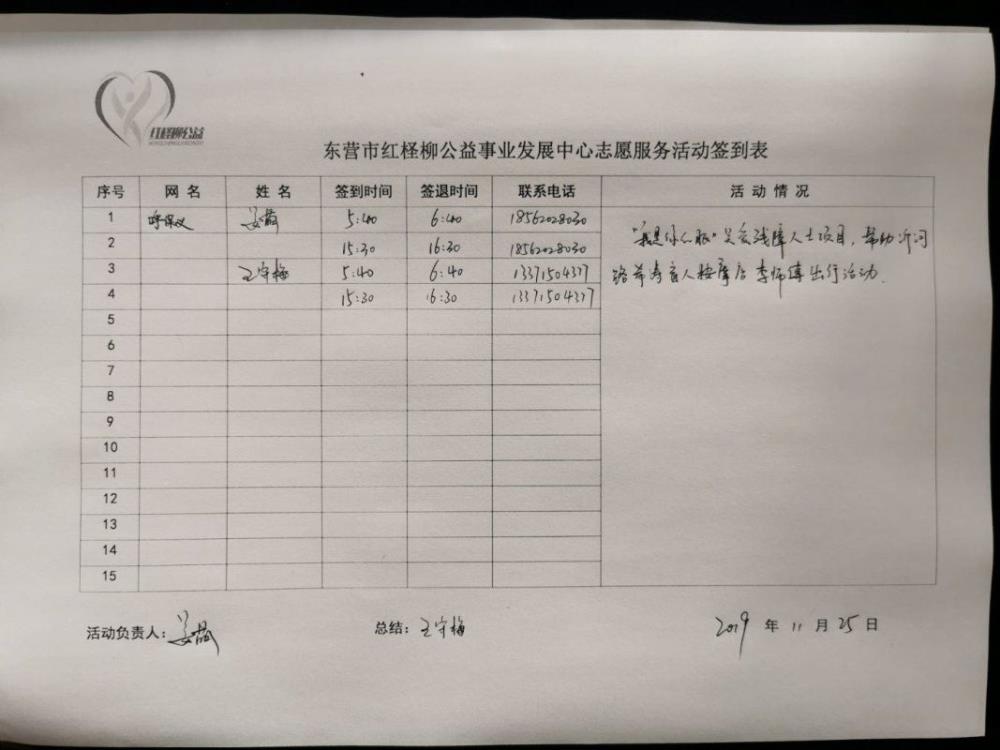 红柽柳公益
东营市红柽柳公益事业发展中心志愿服务活动签到表
序号 网名 姓名 签到时间 签退时间 联系电话 活动情况
1 呼保义 姜 5:40 6:40 18562028030
2 15:30 16:30 18562028030
3 王守梅 5:40 6:40 13371504377
4 15:30 16:30 13371504377
"我是你的眼"关爱残障人士项目，帮助沂河
路 盲人按摩店李师傅出行活动.
5
6
7
8
9
10
11
12
13
14
15
活动负责人：姜 总结：王守梅 2019 年 11 月 25 日